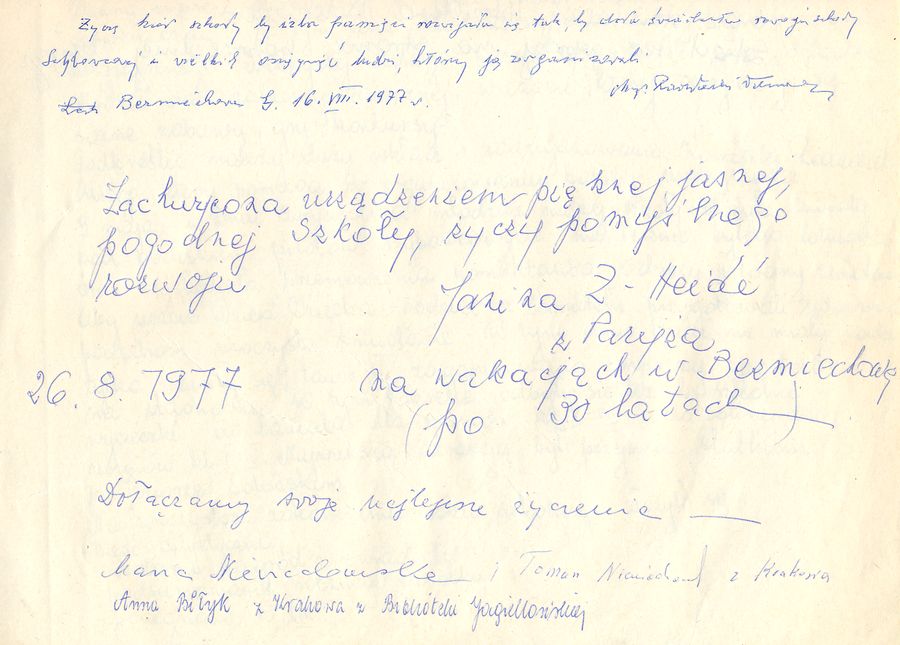 Życzę kier szkoły by izba pamięci rozwijała się tak, by dała świadectwo swojej szkoły
i wielkich osiągnięć ludzi, którzy ją zorganizowali.
Bezmiechowa G. 16. VIII. 1977 r. mgr
Zachwycona urządzeniem pięknej, jasnej,
pogodnej Szkoły, życzy pomyślnego
rozwoju
Janina Z-Heidé
z Paryża
26. 8. 1977 na wakacjach w Bezmiechowej
(po 30 latach)
Dołączamy swoje najlepsze życzenia
Maria i Roman z Krakowa
Anna Biłyk z Krakowa z Biblioteki Jagiellońskiej